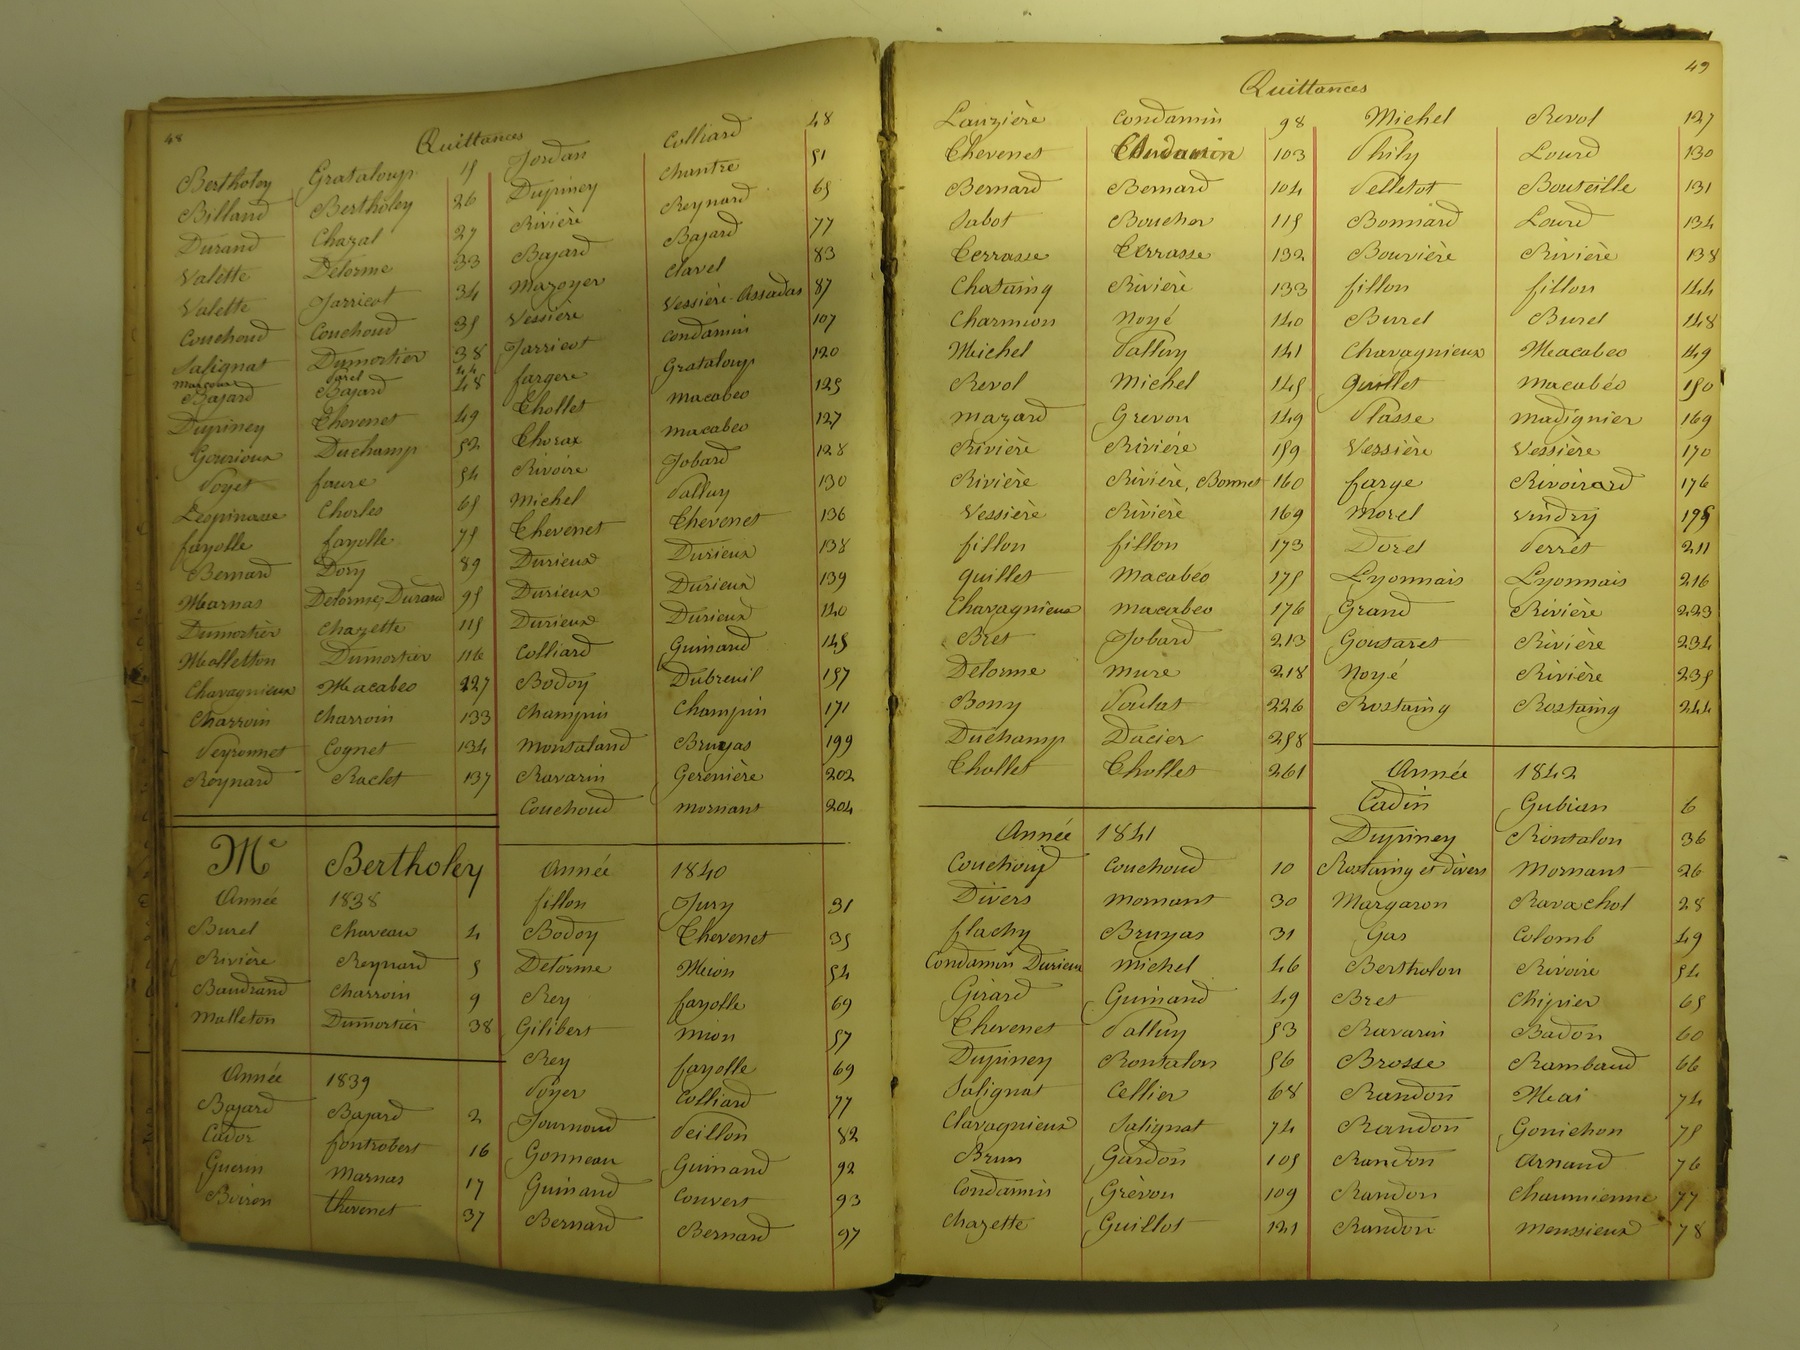 48
Quittances
Bertholey Grataloup 15
Billand Bertholey 26
Durand Chazal 27
Valette Delorme 33
Valette Jarricot 34
Couchoud Couchoud 35
Salignat Dumortier 38
Marcoux 44
Bajard Bajard 48
Dupiney Thevenet 49
Gourioux Duchamp 52
Poyet faure 54
Lespinasse Charles 65
fayolle fayolle 75
Bernard Dory 89
Marnas Delorme, Durand 95
Dumortier Chazette 115
Malletton Dumortier 116
Chavagnieux Macabeo 127
Charroin Charroin 133
Peyronnet Cognet 134
Reynard Raclet 137
Me Bertholey
Année 1838
Burel Chaveau 4
Rivière Reynard 5
Baudrand Charroin 9
Malleton Dumortier 38
Année 1839
Bajard Bajard 2
Cador fontrobert 16
Guerin Marnas 17
Boiron thevenet 37
Jordan Colliard 48
Dupiney Chantre 51
Rivière Reynard 65
Bajard Bajard 77
Mazoyer Clavel 83
Vessière Vessière-Assadas 87
Jarricot Condamin 107
fargere Grataloup 120
Thollet Macabeo 125
Thorax Macabeo 127
Rivoire Jobard 128
Michel Palluy 130
Thevenet Thevenet 136
Durieux Durieux 138
Durieux Durieux 139
Durieux Durieux 140
Colliard Guinand 145
Bodoy Dubreuil 157
Champin Champin 171
Monsaland Bruyas 199
Ravarin Gerenière 202
Couchoud Mornant 204
Année 1840
fillon Jury 31
Bodoy Thevenet 35
Delorme Mion 54
Rey fayolle 69
Gilibert Mion 57
Rey fayolle 69
Poyer Colliard 77
Journoud Peillon 82
Gonneau Guinand 92
Guinand Couvert 93
Bernard Bernard 97
49
Quittances
Lauzière Condamin 98
Thevenet Condamin 103
Bernard Bernard 104
Sabot Boucher 115
Terrasse Terrasse 132
Chataing Rivière 133
Charmion Noyé 140
Michel Palluy 141
Revol Michel 145
Mazard Grevon 149
Rivière Rivière 159
Rivière Rivière, Bonnet 160
Vessière Rivière 169
fillon fillon 173
Guillet Macabéo 175
Chavagnieux Macabeo 176
Bret Jobard 213
Delorme Mure 218
Bony Poulat 226
Duchamp Dacier 258
Thollet Thollet 261
Année 1841
Couchoud Couchoud 10
Divers Mornant 30
flachy Bruyas 31
Condamin Durieux Michel 46
Girard Guinand 49
Thevenet Palluy 53
Dupiney Rontalon 56
Salignat Cellier 68
Chavagnieux Salignat 74
Brun Gardon 105
Condamin Grèvon 109
Chazette Guillot 121
Michel Revol 127
Phily Lourd 130
Pelletot Bouteille 131
Bonnard Lourd 134
Bouvière Rivière 138
fillon fillon 144
Burel Burel 148
Chavagnieux Macabeo 149
Guillet Macabéo 150
Plasse Madignier 169
Vessière Vessière 170
farge Rivoirard 176
Morel Vindry 195
Dorel Perret 211
Lyonnais Lyonnais 216
Grand Rivière 223
Goutaret Rivière 234
Noyé Rivière 235
Rostaing Rostaing 244
Année 1842
Cadin Gubian 6
Dupiney Rontalon 36
Rostaing et divers Mornant 26
Margaron Ravachol 28
Gas Colomb 49
Bertholon Rivoire 54
Bret Chipier 65
Ravarin Badon 60
Brosse Rambaud 66
Randon Meai 74
Randon Gonichon 75
Randon Arnaud 76
Randon Chaumienne 77
Randon Monssieux 78